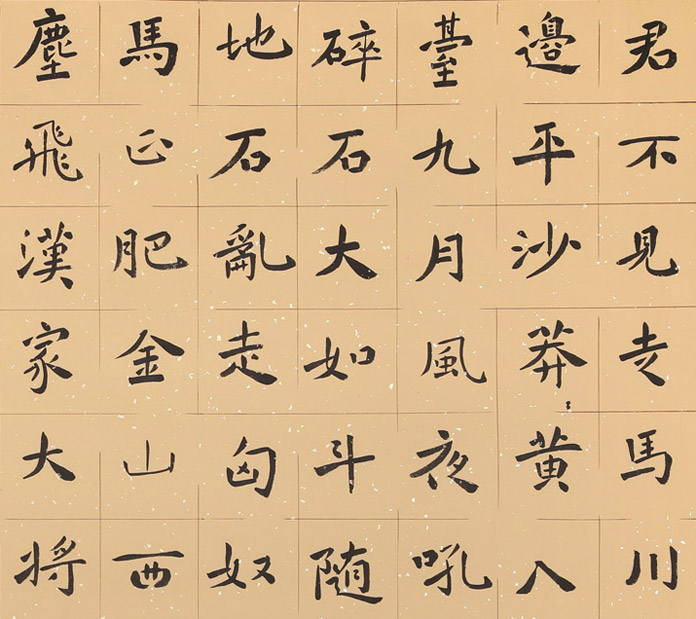 君不見走馬川
邊平沙莽〻黄入
臺九月風夜吼
碎石大如斗随
地石亂走匈奴
馬正肥金山西
塵飛漢家大将